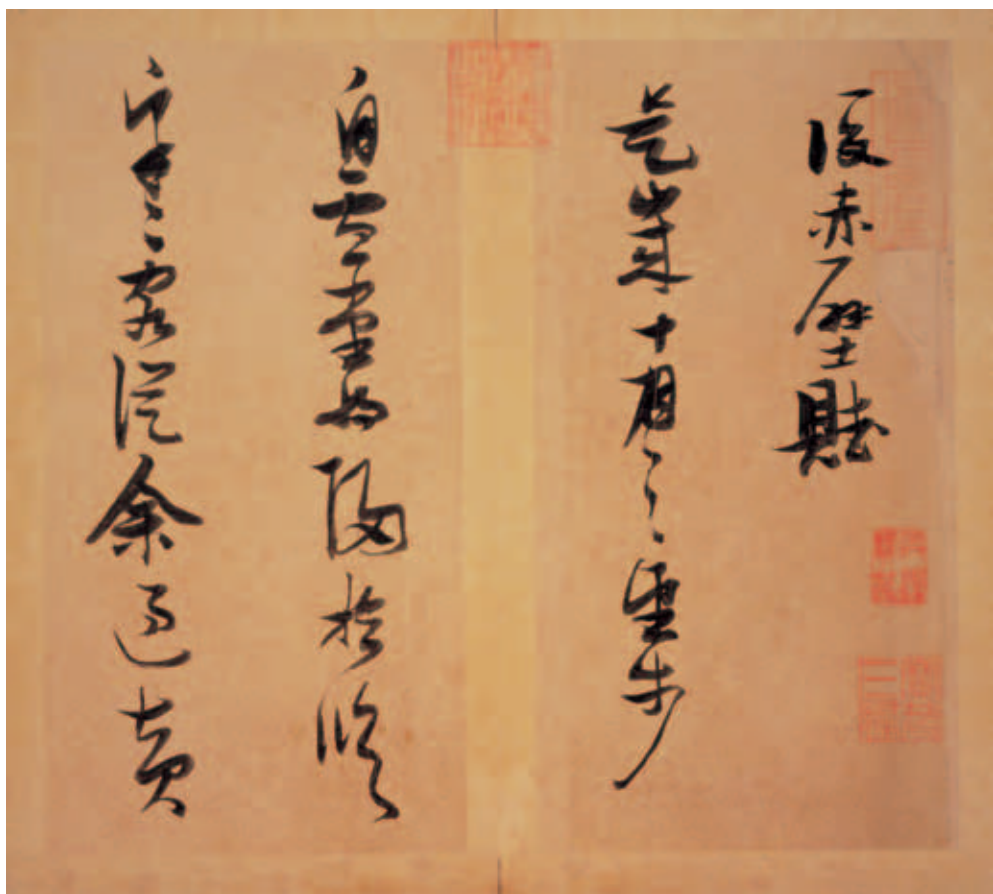 後赤壁賦
是歲十月之望步
自雪堂將歸於臨
皋二客從余過黃